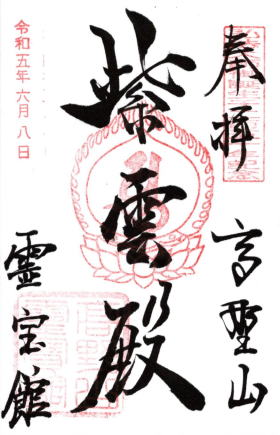 奉拝
高野山
紫雲殿
令和五年六月八日
霊宝館